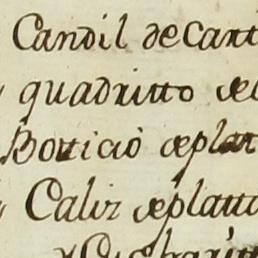 Candil de Cant
quadritto de
Botició de plat
Caliz de platta